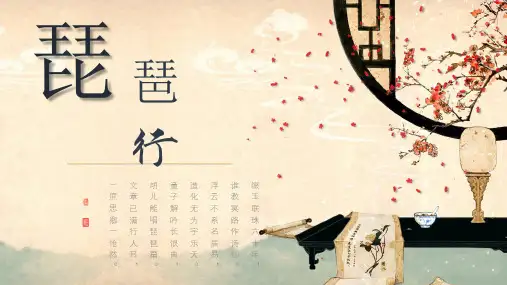 琵
琶
行
缀玉联珠六十年，
谁教冥路作诗仙。
浮云不系名居易，
造化无为字乐天。
童子解吟长恨曲，
胡儿能唱琵琶篇。
文章已满行人耳，
一度思卿一怆然。